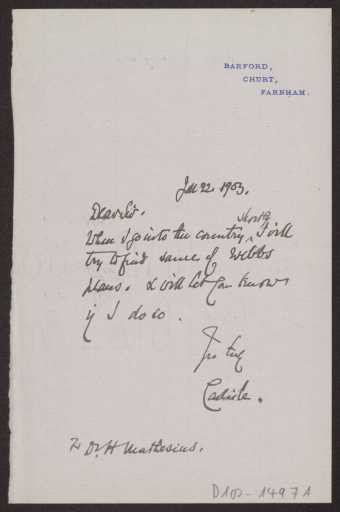 BARFORD,
CHURT,
FARNHAM.
Jan 22 1903.
Dear Sir.
When I go into the country, shortly I will
try to find some of Webbs
plans. & will let you know
if I do so.
Yrs truly
Carlisle.
To Dr. H Muthesius.
D102-1497 1